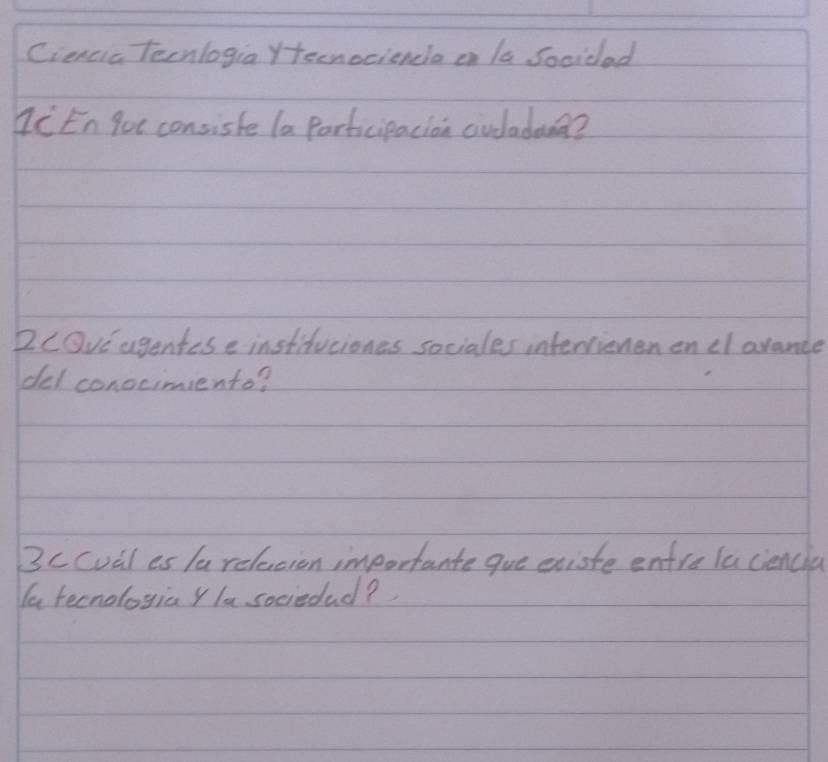 Ciencia Tecnlogia Y tecnociencia en la Socidad
1¿En que consiste la Participación ciudadana?
2¿Qué agentes e instituciones sociales intervienen en el avance
del conocimiento?
3¿Cuál es la relacion importante que existe entre la ciencia
la tecnologia Y la sociedad?